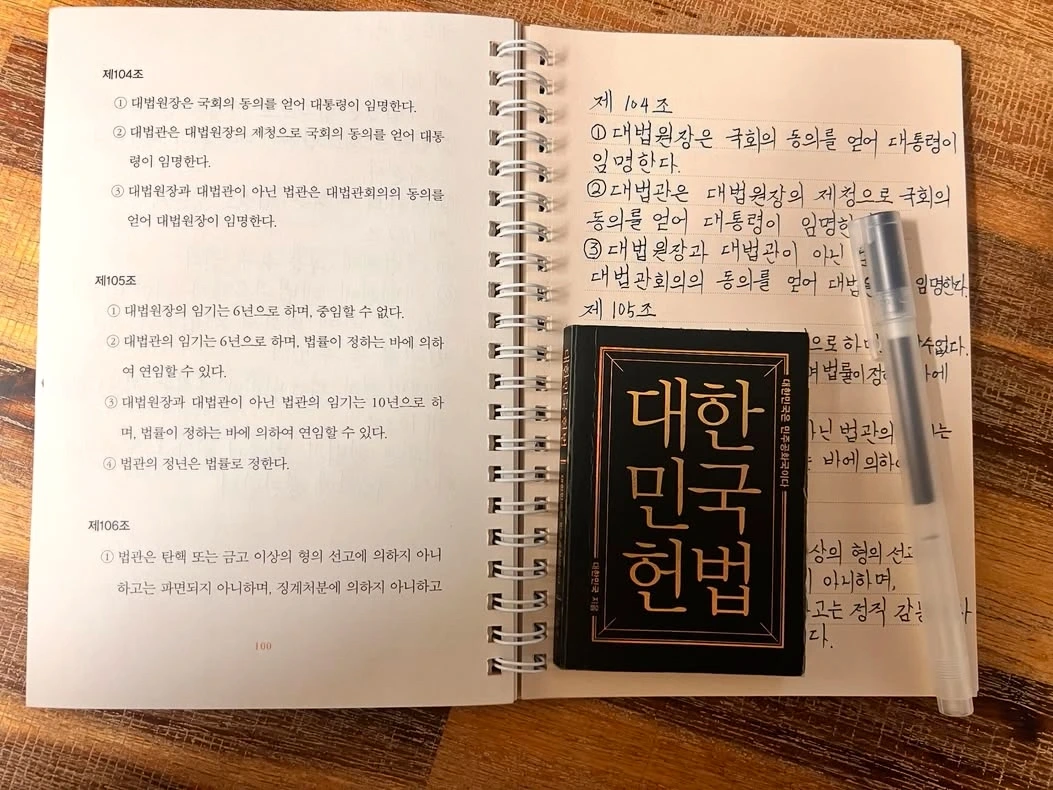 제104조
① 대법원장은 국회의 동의를 얻어 대통령이 임명한다.
② 대법관은 대법원장의 제청으로 국회의 동의를 얻어 대통
령이 임명한다.
③ 대법원장과 대법관이 아닌 법관은 대법관회의의 동의를
얻어 대법원장이 임명한다.
제105조
① 대법원장의 임기는 6년으로 하며, 중임할 수 없다.
② 대법관의 임기는 6년으로 하며, 법률이 정하는 바에 의하
여 연임할 수 있다.
③ 대법원장과 대법관이 아닌 법관의 임기는 10년으로 하
며, 법률이 정하는 바에 의하여 연임할 수 있다.
④ 법관의 정년은 법률로 정한다.
제106조
① 법관은 탄핵 또는 금고 이상의 형의 선고에 의하지 아니
하고는 파면되지 아니하며, 징계처분에 의하지 아니하고
100
제 104조
① 대법원장은 국회의 동의를 얻어 대통령이
임명한다.
② 대법관은 대법원장의 제청으로 국회의
동의를 얻어 대통령이 임명한
③ 대법원장과 대법관이 아닌
대법관회의의 동의를 얻어 대법 임명한다.
제 105조
으로 하며 수없다.
며 법률이 정하 바에
아닌 법관의 는
바에 의하여
이상의 형의 선고
아니하며,
하고는 정직 감
다.
대한
민국
헌법
대한민국은 민주공화국이다
대한민국 지음
대한민국 헌법